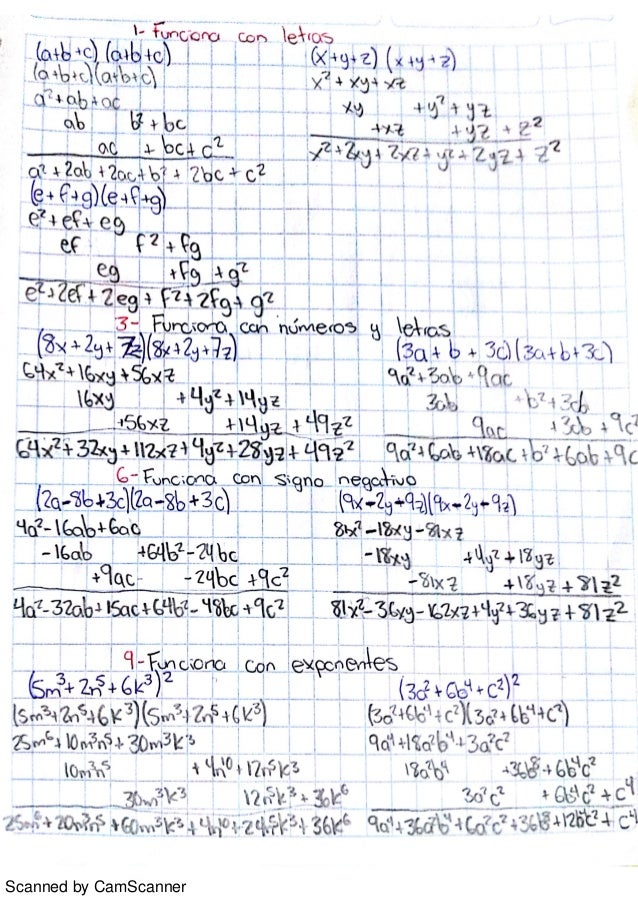 1- Funciona con letras
(a+b+c) (a+b+c)
(a+b+c)(a+b+c)
a²+ab+ac
ab b²+bc
ac + bc+c²
a²+2ab+2ac+b²+2bc+c²
(x+y+z) (x+y+z)
x²+xy+xz
xy +y²+yz
+xz +yz+z²
x²+2xy+2xz+y²+2yz+z²
(e+f+g)(e+f+g)
e²+ef+eg
ef f²+fg
eg +fg+g²
e²+2ef+2eg+f²+2fg+g²
3- Funciona con números y letras
(8x+2y+7z)(8x+2y+7z)
64x²+16xy+56xz
16xy +4y²+14yz
+56xz +14yz+49z²
64x²+32xy+112xz+4y²+28yz+49z²
(3a+b+3c)(3a+b+3c)
9a²+3ab+9ac
3ab +b²+3cb
9ac +3cb+9c²
9a²+6ab+18ac+b²+6ab+9c
6-Funciona con signo negativo
(2a-8b+3c)(2a-8b+3c)
4a²-16ab+6ac
-16ab +64b²-24bc
+9ac -24bc+9c²
4a²-32ab+15ac+64b²-48bc+9c²
(9x-2y-9z)(9x-2y-9z)
81x²-18xy-81xz
-18xy +4y²+18yz
-81xz +18yz+81z²
81x²-36xy-162xz+4y²+36yz+81z²
9-Funciona con exponentes
(5m³+2n⁵+6k³)²
(5m³+2n⁵+6k³)(5m³+2n⁵+6k³)
25m⁶+10m³n⁵+30m³k³
10m³n⁵ +4n¹⁰+12n⁵k³
30m³k³ 12n⁵k³+36k⁶
25m⁶+20m³n⁵+60m³k³+4n¹⁰+24n⁵k³+36k⁶
(3a²+6b⁴+c²)²
(3a²+6b⁴+c²)(3a²+6b⁴+c²)
9a⁴+18a²b⁴+3a²c²
18a²b⁴ +36b⁸+6b⁴c²
3a²c² +6b⁴c²+c⁴
9a⁴+36a²b⁴+6a²c²+36b⁸+12b⁴c²+c⁴
Scanned by CamScanner